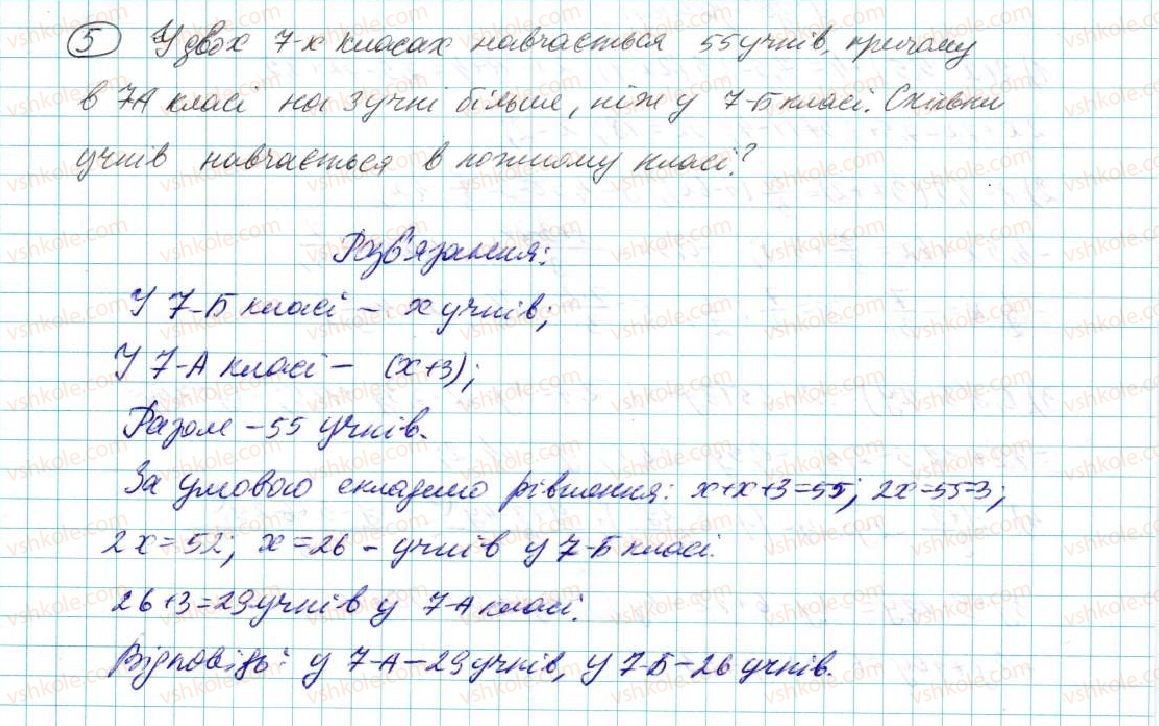 5 У двох 7-х класах навчається 55 учнів, причому
в 7А класі на 3 учні більше, ніж у 7-Б класі. Скільки
учнів навчається в кожному класі?
Розв'язання:
У 7-Б класі – x учнів;
У 7-А класі – (x+3);
Разом – 55 учнів.
За умовою складемо рівняння: x+x+3=55; 2x=55-3;
2x=52; x=26 - учнів у 7-Б класі.
26+3=29 учнів у 7-А класі.
Відповідь: у 7-А – 29 учнів, у 7-Б – 26 учнів.
vshkole.com